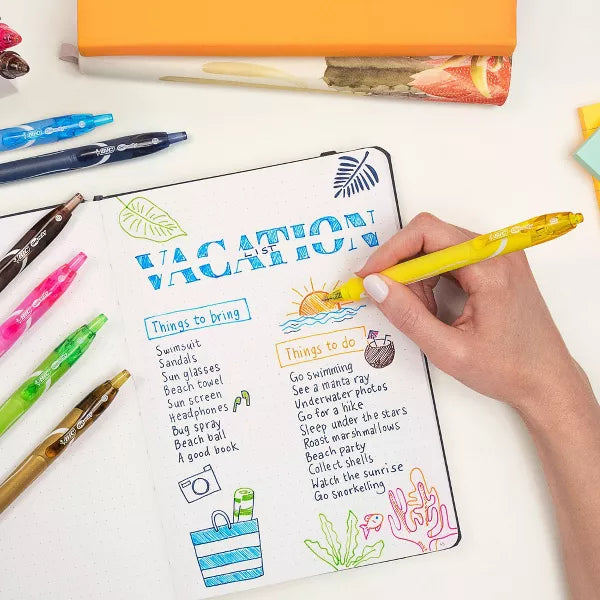 BIC
BIC
BIC
BIC
BIC
BIC
VACATION
LIST
Things to bring
Swimsuit
Sandals
Sun glasses
Beach towel
Sun screen
Headphones
Bug spray
Beach ball
A good book
Things to do
Go swimming
See a manta ray
Underwater photos
Go for a hike
Sleep under the stars
Roast marshmallows
Beach party
Collect shells
Watch the sunrise
Go snorkelling